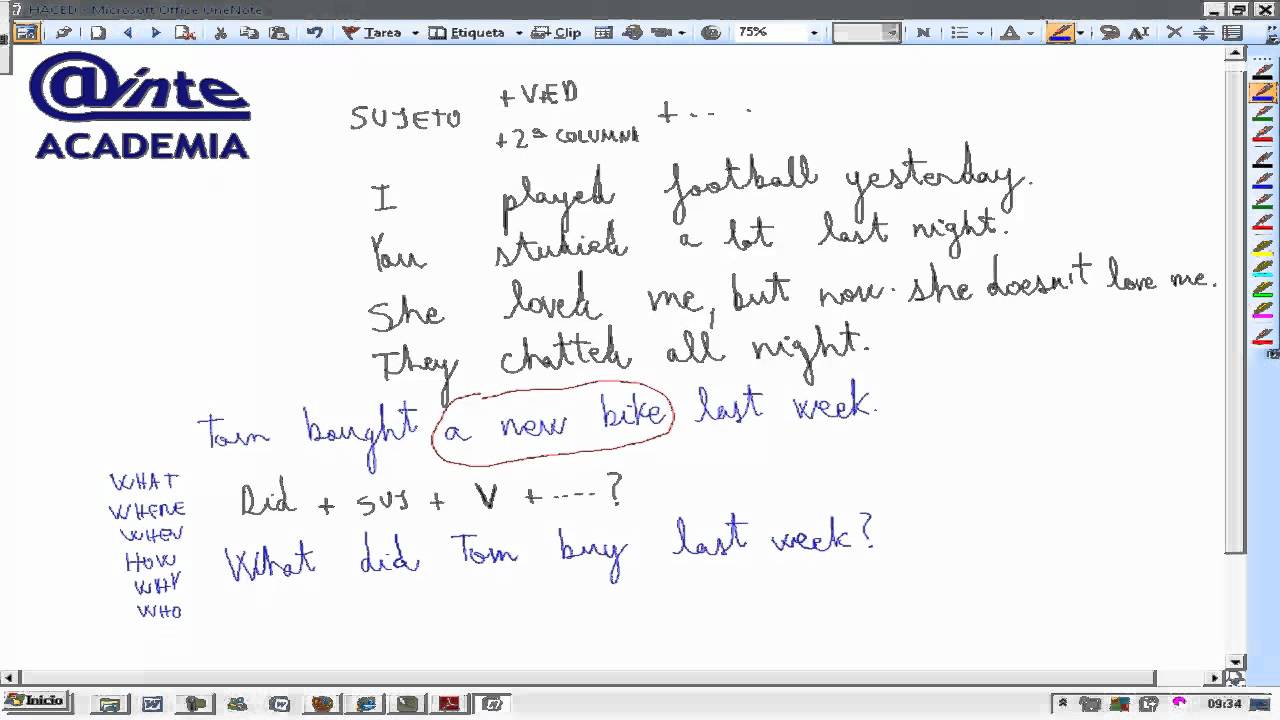 HACED - Microsoft Office OneNote
Tarea Etiqueta Clip 75% N
@inte
ACADEMIA
SUJETO + V-ED + .. .
+ 2ª COLUMNA
I played football yesterday.
You studied a lot last night.
She loved me, but now. she doesn't love me.
They chatted all night.
Tom bought a new bike last week.
WHAT
WHERE
WHEN
HOW
WHY
WHO
Did + SUJ + V + ----?
What did Tom buy last week?
Inicio 09:34